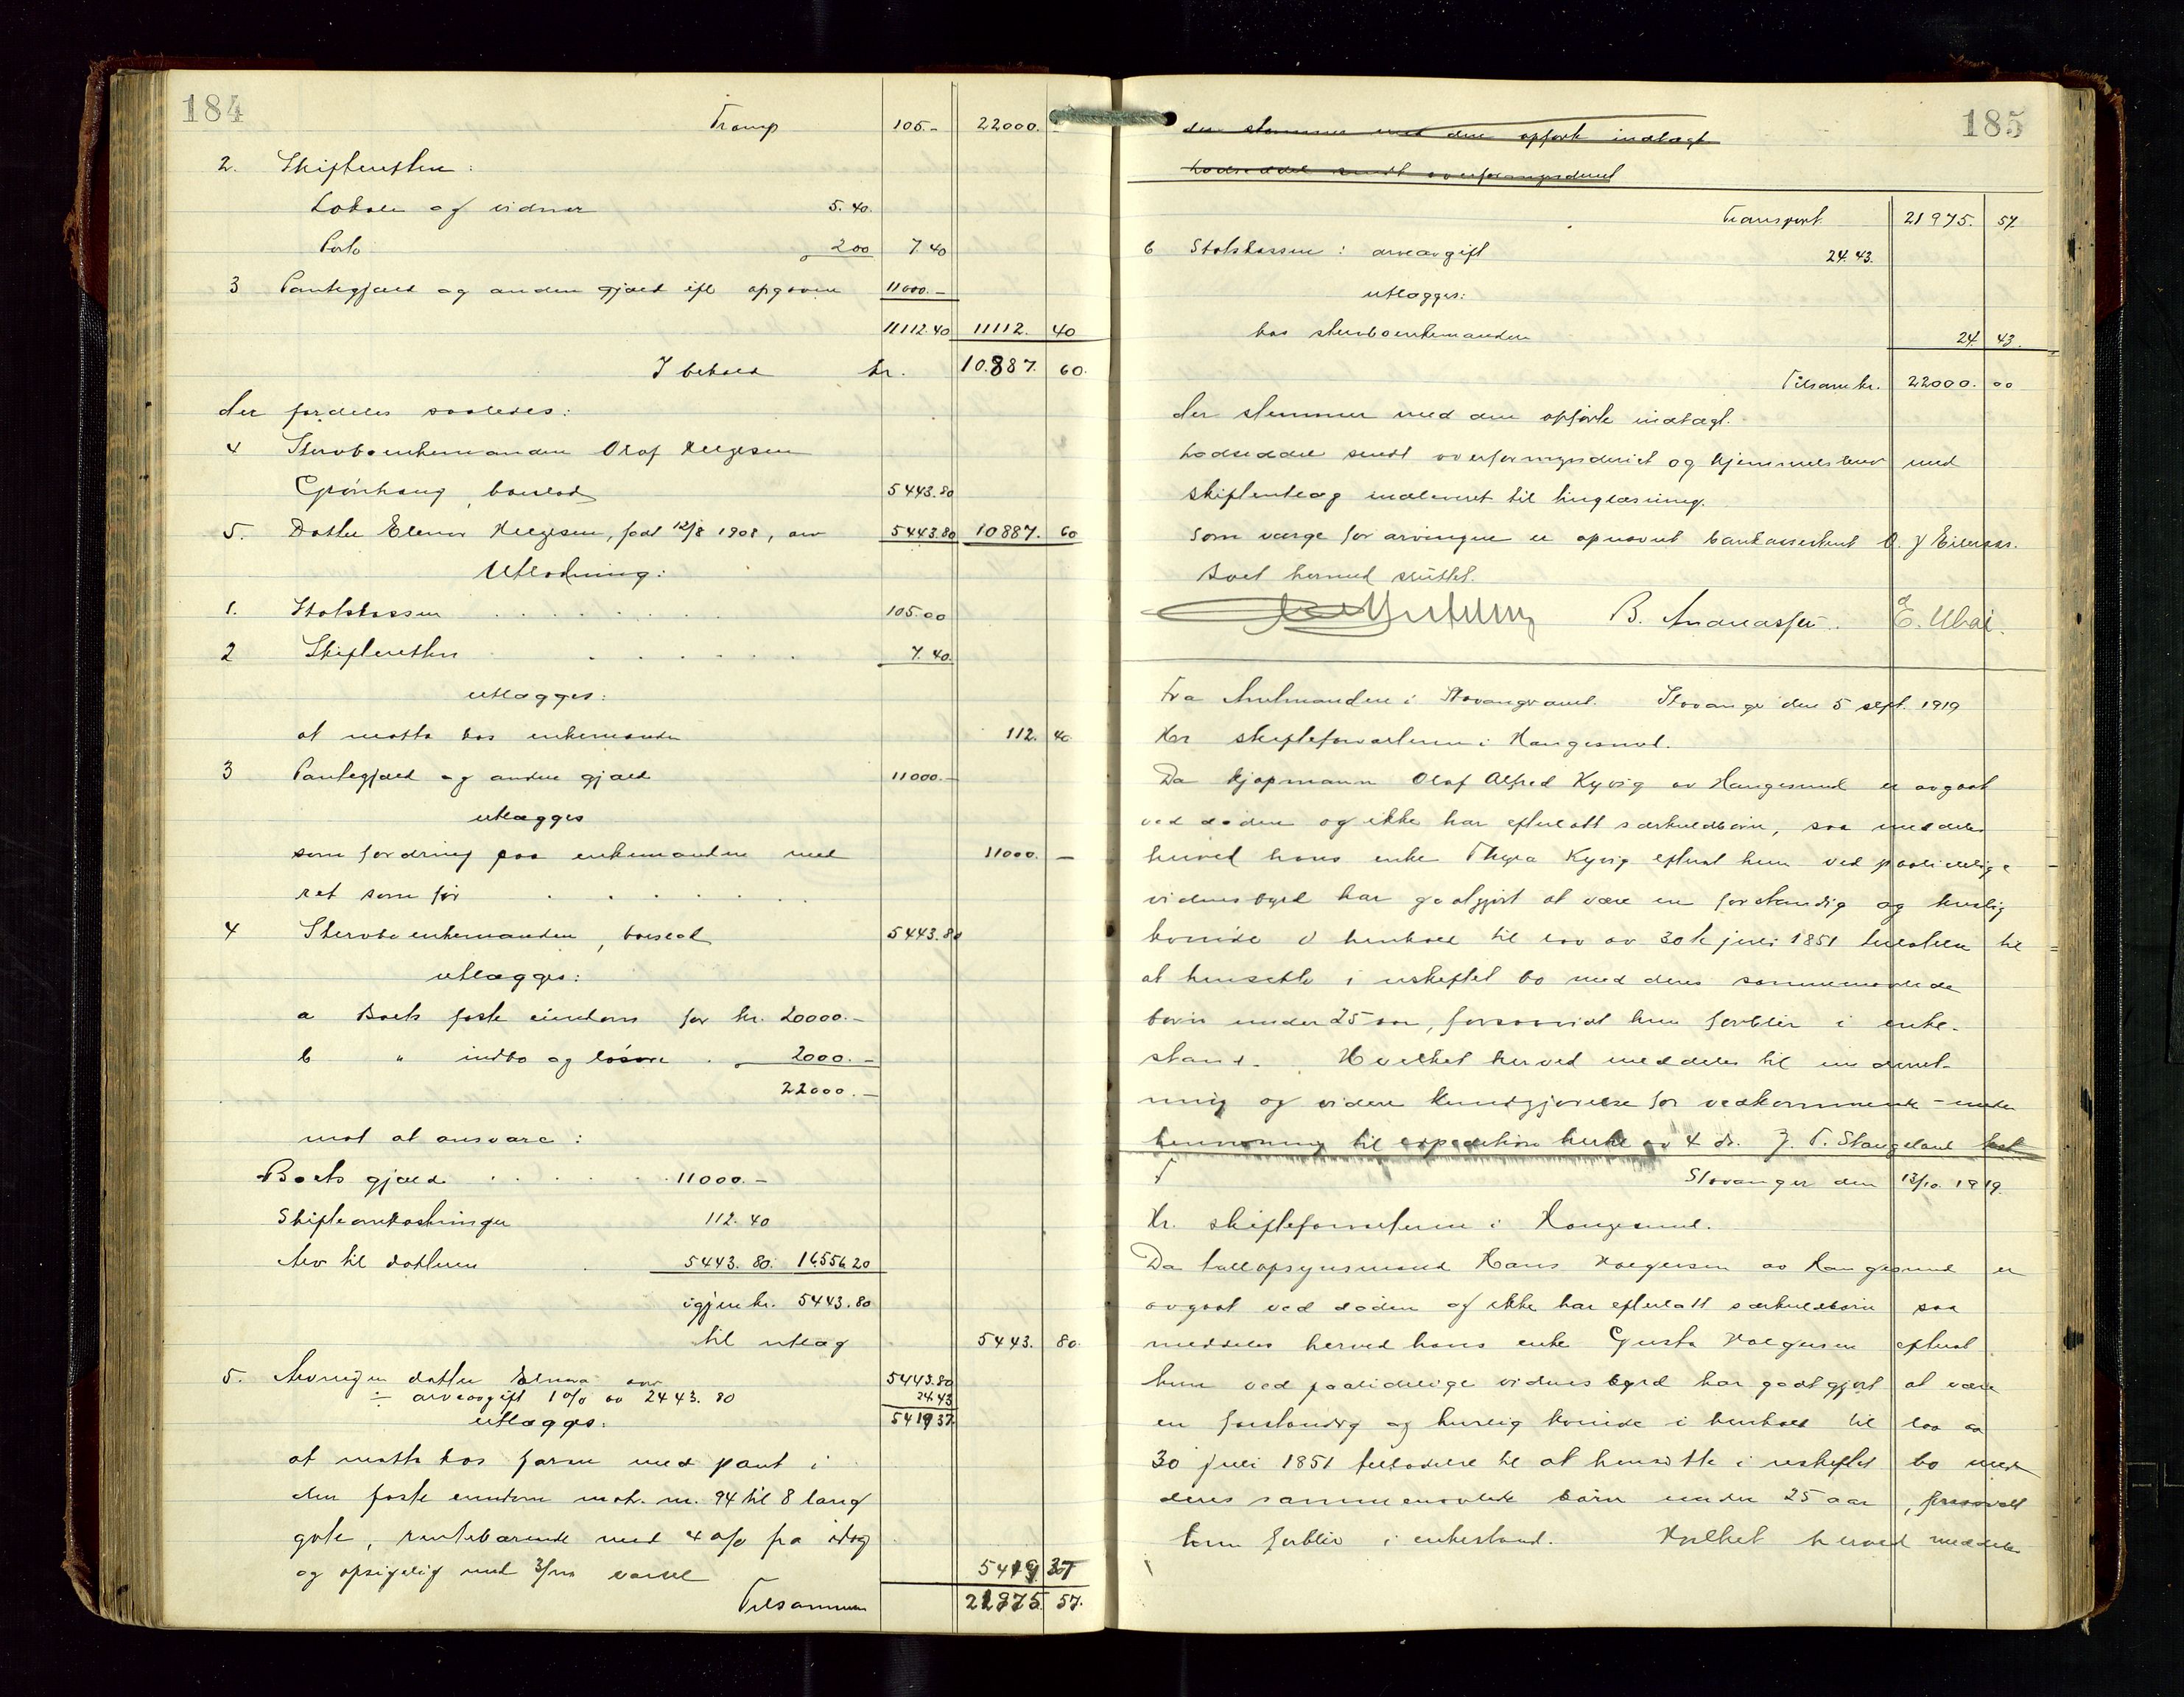 184
Transp 105.- 22000. -
2. Skifteretten:
Lokale og vidner 5.40.
Porto 2 00 7.40
3 Pantegjæld og anden gjæld ifl opgave 11000.-
11112.40 11112. 40
I behold kr. 10.887. 60.
der fordeles saaledes:
4 Stervboenkemanden Olaf Helgesen
Grönhaug, boeslod 5443.80
5. Datter Elenor Helgesen, født 12/8 1908, arv 5443.80 10887. 60
Utlodning:
1. Statskassen 105.00
2 Skifteretten 7.40.
utlægges:
at motta hos enkemanden 112. 40
3 Pantegjæld og anden gjæld 11000.-
utlægges
som fordring paa enkemanden med 11000. -
ret som før
4 Stervboenkemanden, boeslod 5443.80
utlægges:
a Boets faste eiendom for kr. 20000.-
b " indbo og løsøre . 2000.-
22000.-
mot at ansvare:
Boets gjæld 11000.-
Skifteomkostninger 112.40
Arv til datteren 5443.80. 16556.20
igjen kr. 5443.80
til utlæg 5443. 80.
5. Arvingen datter arv 5443.80
÷ arveavgift 1 o/o av 2443.80 24.43
utlægges: 5419.37
at motta hos faren med pant i
den faste eiendom matr. nr. 94 til 8 lang
gate, rentebærende med 4 o/o fra idag
og opsigelig med 3/m varsel 5419 37
Tilsammen 21975. 57.
185
der stemmer med den opførte indtægt
Lodseddel sendt overformynderiet
Transport 21975. 57
6 Statskassen: arveavgift 24.43.
utlægges:
hos stervboenkemanden 24. 43.
Tilsam kr. 22000. 00
der stemmer med den opførte indtægt.
Lodseddel sendt overformynderiet og hjemmelsbrev med
skifteutlæg indleveret til tinglæsning.
Som værge for arvingen er opnævnt bankassistent O. J Eilersen.
Boet hermed sluttet.
B. Andreassen. E. Ubøe.
Fra Amtmanden i Stavanger amt. Stavanger den 5 sept. 1919
Herr skifteforvalteren i Haugesund.
Da kjøpmann Olaf Alfred Kyvig av Haugesund er avgaat
ved døden og ikke har efterlatt særkuldbørn, saa meddeles
herved hans enke Thyra Kyvig efterat hun ved paalidelige
vidnesbyrd har godtgjort at være en forstandig og huslig
kvinde i henhold til lov av 30te juli 1851 tilladelse til
at hensitte i uskiftet bo med deres sammenavlede
børn under 25 aar, forsaavidt hun forblir i enke-
stand. Hvilket herved meddeles til underret-
ning og videre kundgjørelse for vedkommende - under
henvisning til expedition herfra av 4 ds. J. T. Stangeland
Stavanger den 13/10. 1919.
Hr. skifteforvalteren i Haugesund.
Da Hans Holgersen av Haugesund er
avgaat ved døden og ikke har efterlatt særkuldbørn saa
meddeles herved hans enke Gusta Holgersen efterat
hun ved paalidelige vidnesbyrd har godtgjort at være
en forstandig og huslig kvinde i henhold til lov av
30 juli 1851 tilladelse til at hensitte i uskiftet bo med
deres sammenavlede børn under 25 aar, forsaavidt
hun forblir i enkestand. Hvilket herved meddeles